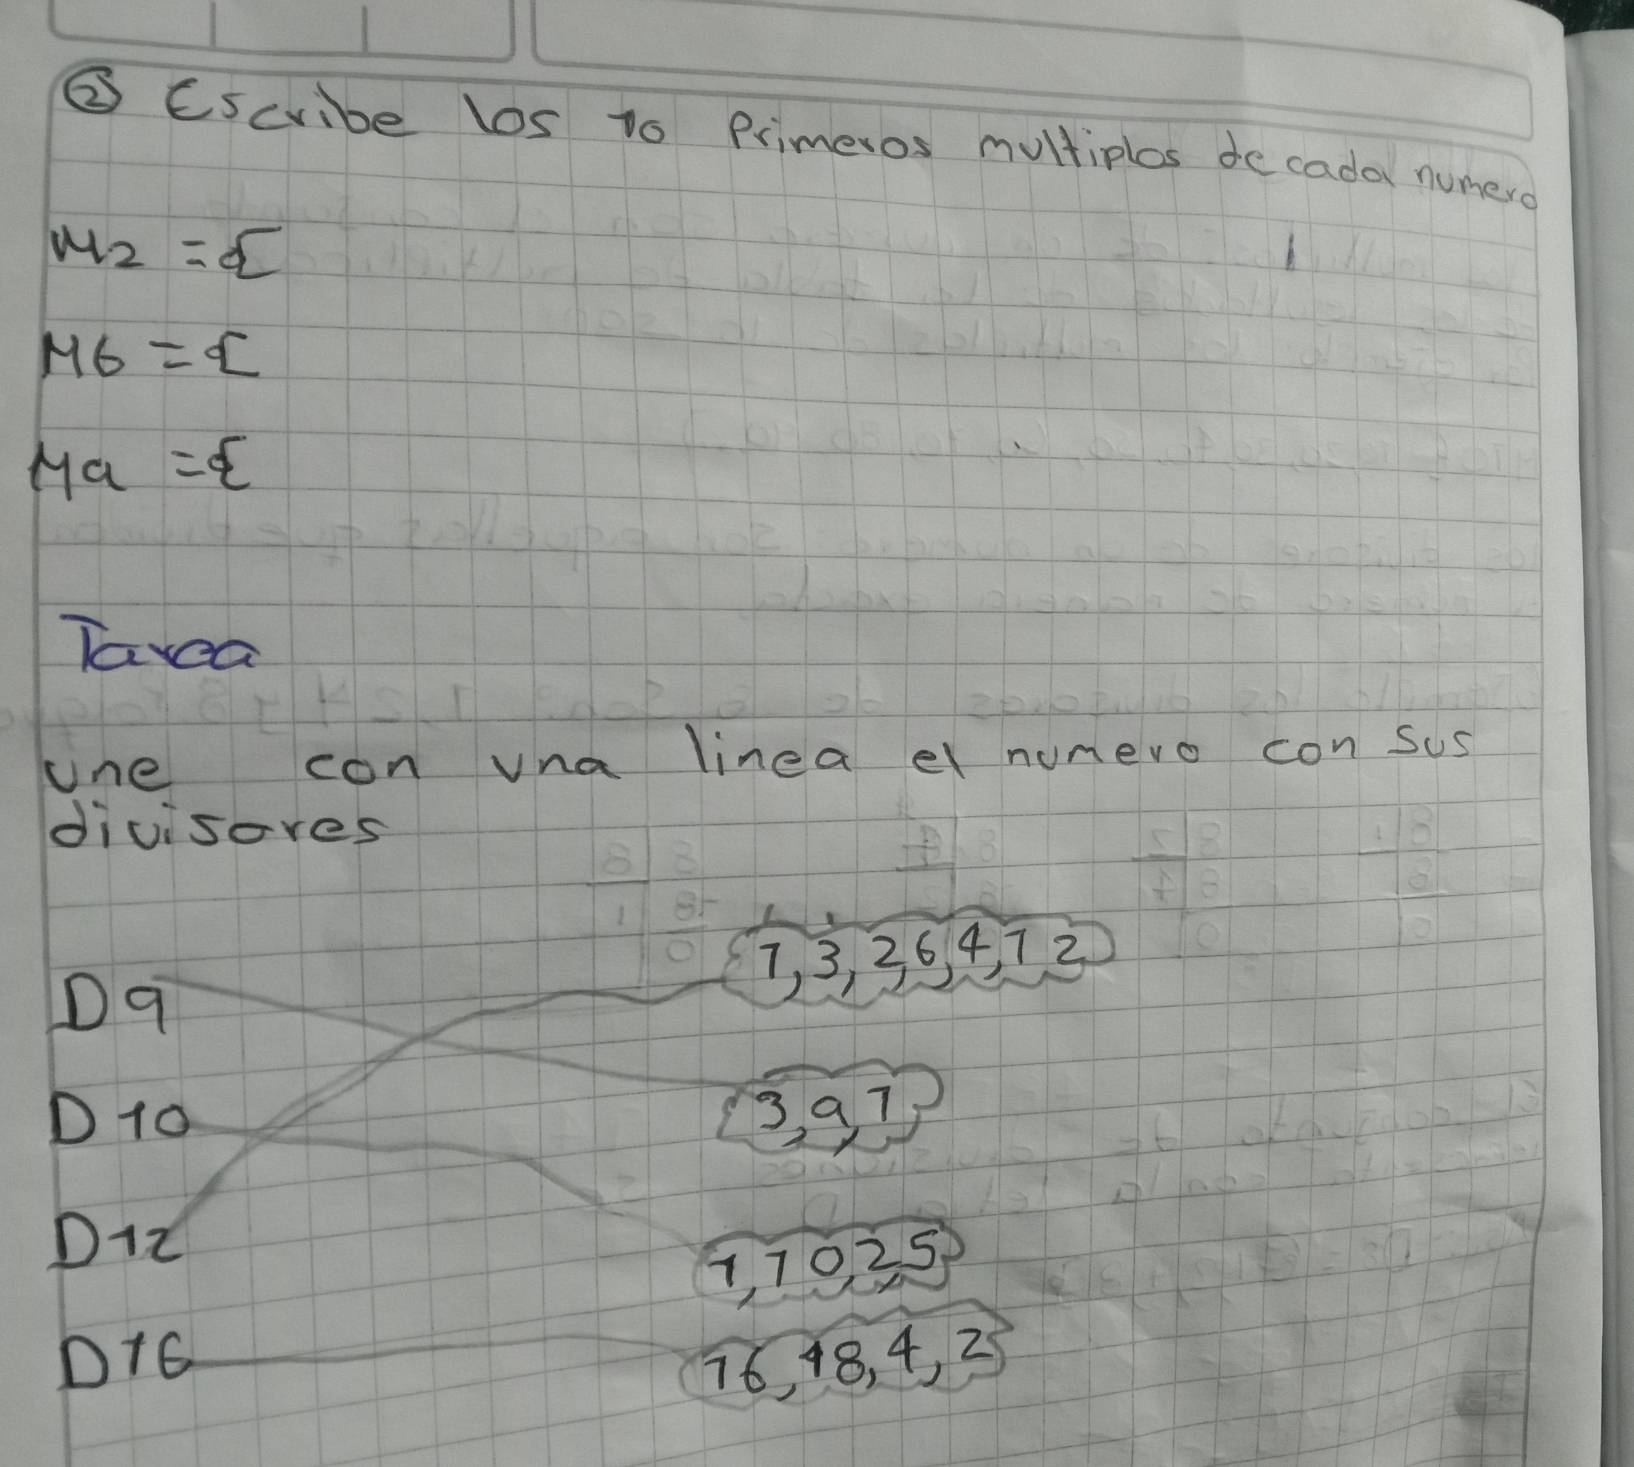 ② Escribe los 10 Primeros multiplos de cada numero
M2 = {
M6 = {
M9 = {
Tarea
une con una linea el numero con sus
divisores
1, 3, 2, 6, 4, 12
D 9
3, 9, 1
D 10
D 12
1, 10, 2, 5
D 16
16, 18, 4, 2